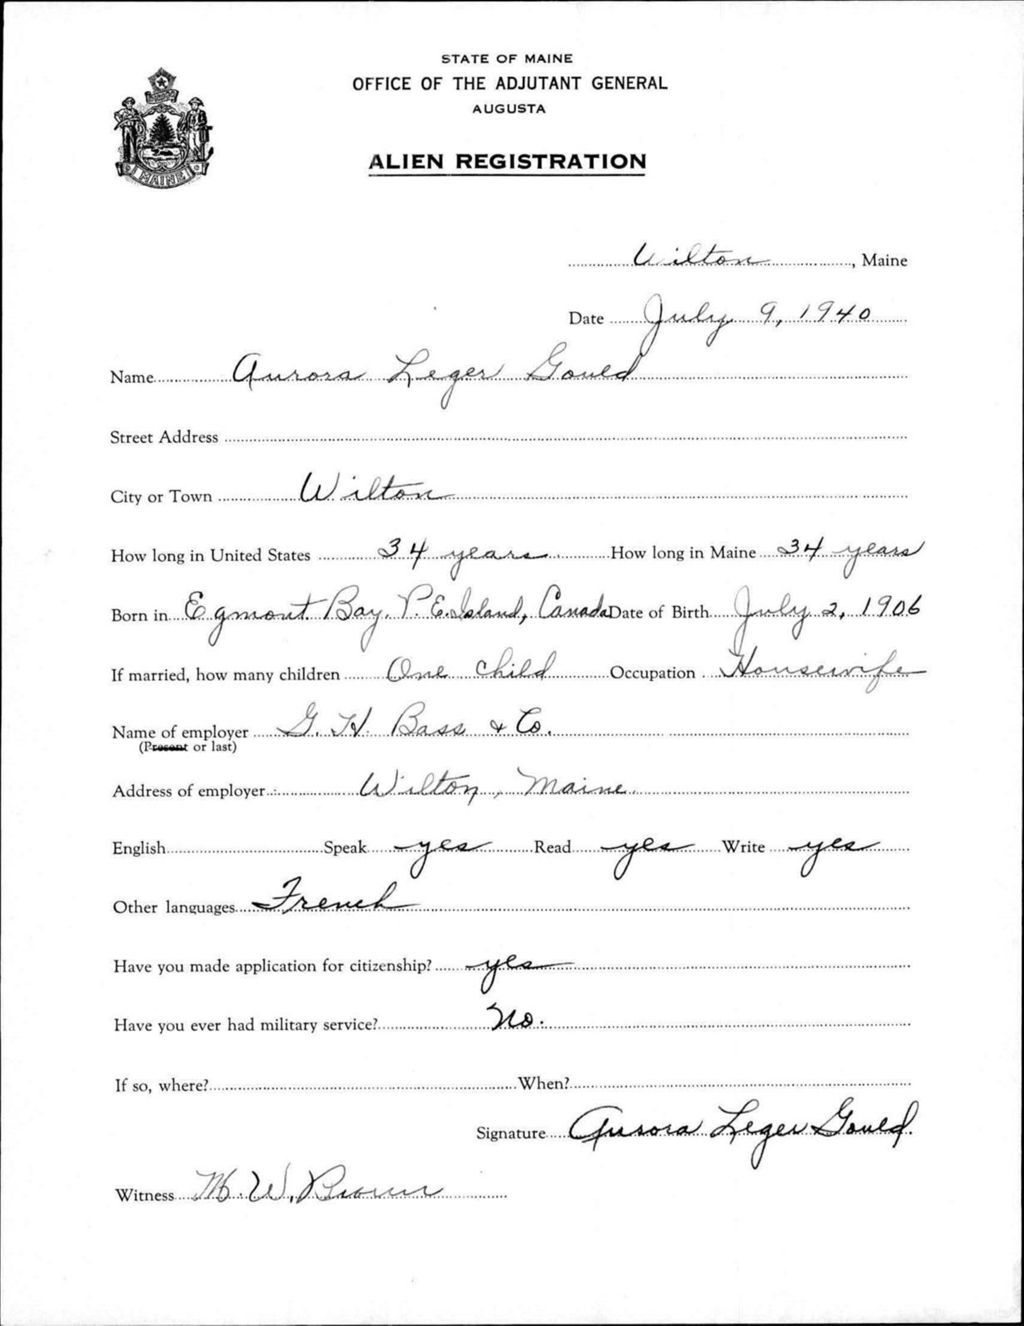 STATE OF MAINE
OFFICE OF THE ADJUTANT GENERAL
AUGUSTA
ALIEN REGISTRATION
MAINE
Wilton, Maine
Date July 9, 1940
Name Aurora Leger Gould
Street Address
City or Town Wilton
How long in United States 34 years How long in Maine 34 years
Born in Egmont Bay, P.E. Island, Canada Date of Birth July 2, 1906
If married, how many children One child Occupation Housewife
Name of employer G. H. Bass & Co.
(Present or last)
Address of employer Wilton, Maine.
English Speak yes Read yes Write yes
Other languages French
Have you made application for citizenship? yes
Have you ever had military service? No.
If so, where? When?
Signature Aurora Leger Gould.
Witness M. W. Brown